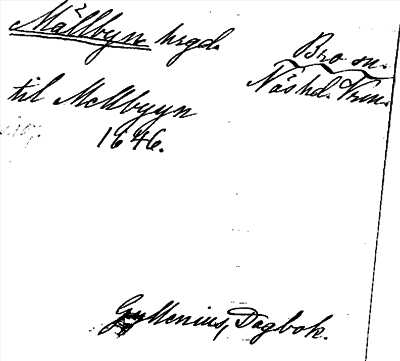 Mållbyn hrgd.
Bro sn.
Näshd. Vrm.
til Mellbyyn
1646.
Gyllenius, Dagbok.